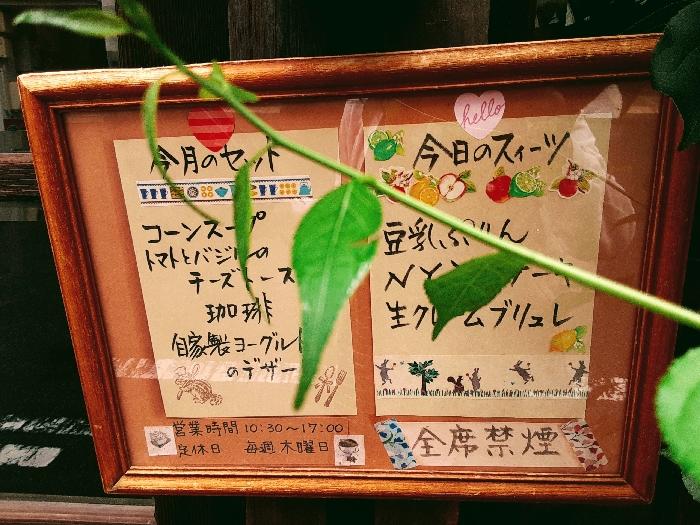 今月のセット
コーンスープ
トマトとバジルの
チーズトース
珈琲
自家製ヨーグルト
のデザー
営業時間 10:30~17:00
定休日 毎週木曜日
hello
今日のスィーツ
豆乳ぷりん
NY ーキ
生クリームブリュレ
全席禁煙